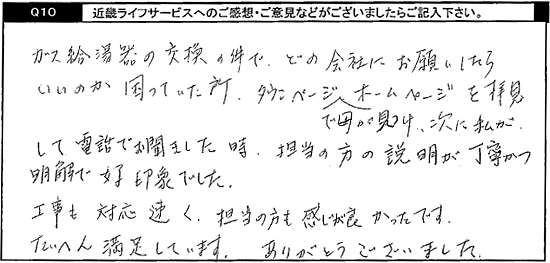 Q10 近畿ライフサービスへのご感想・ご意見などがございましたらご記入下さい。
ガス給湯器の交換の件で、どの会社にお願いしたら
いいのか困っていた所、タウンページ、ホームページを拝見
で母が見つけ、次に私が
して電話でお聞きした時、担当の方の説明が丁寧かつ
明解で好印象でした。
工事も対応速く、担当の方も感じが良かったです。
たいへん満足しています。ありがとうございました。